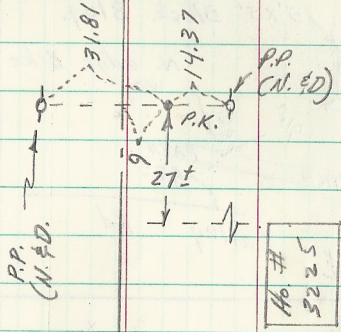 31.81
14.37
P.P.
(N. & D)
P.K.
9
27±
P.P.
(N. & D.
Ho. #
3225